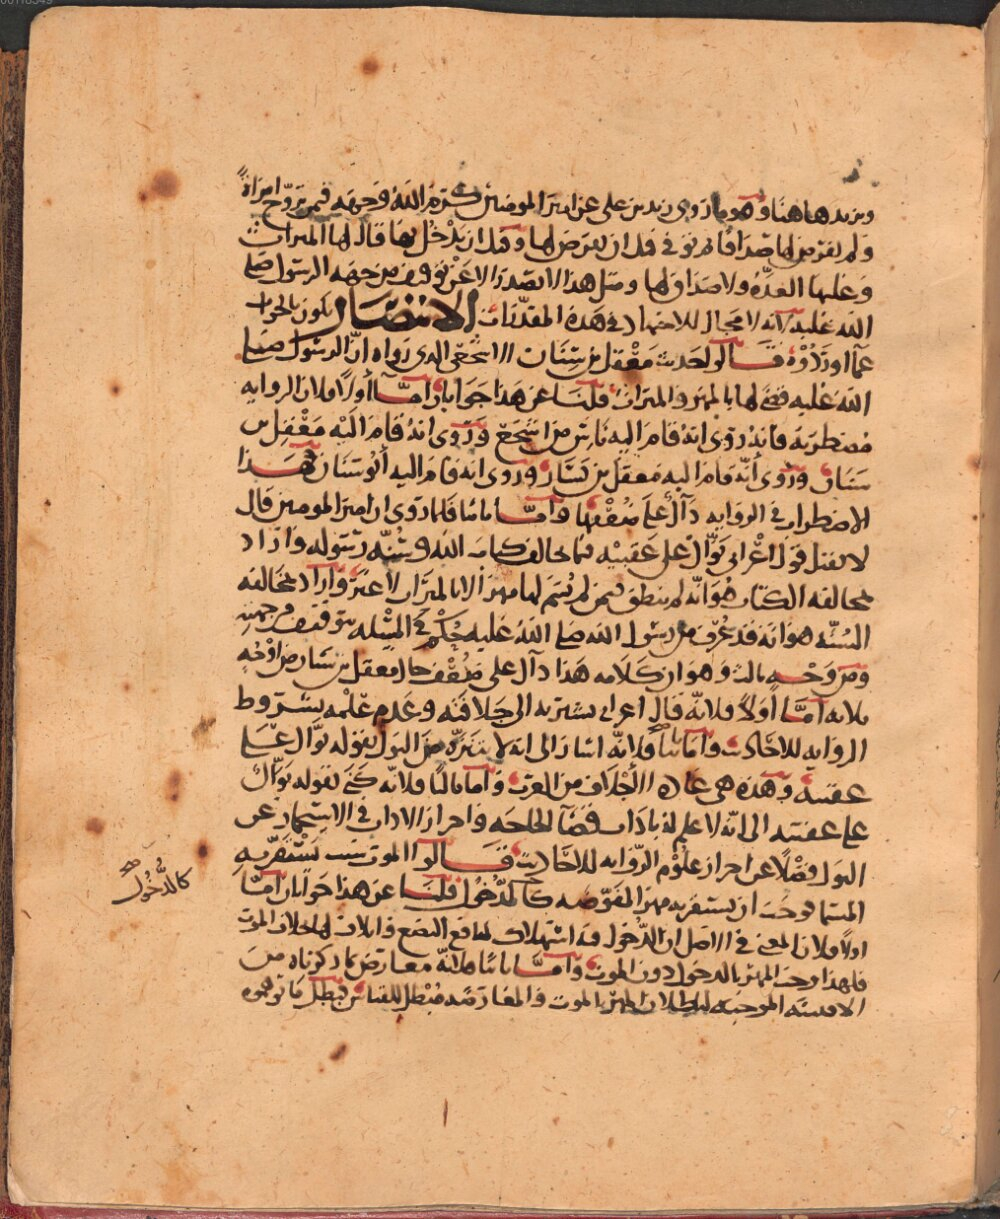 ونزيدها هنا وهو ما روى زيد بن علي عن امير المومنين كرم الله وجهه فيمن تزوج امراةً
ولم يفرض لها صداقًا ثم توفي قبل ان يفرض لها وقبل ان يدخل بها قال لها الميراث
وعليها العدّة ولا صداق لها ومثل هذا لا يصدر الا عن توقيف من جهه الرسول صلى
الله عليه لانه لا مجال للاجتهاد في هذه المقدّرات الانتصار يكون بالجواب
عمّا اوردوه قالوا حديث معقل بن سنان الاشجعي الدى رواه انّ الرسول صلى
الله عليه قضى لها بالمهر والميراث قلنا عن هذا جوابان امّا أولًا فلان الروايه
مضطربة فانه روى انه قام اليه ناس من اشجع وروى انه قام اليه معقل بن
سنان وروى أنّه قام اليه معقل بن يسار وروى انه قام اليه أبو سنان فهذا
الاضطراب في الروايه دآل على ضعفها وامّا ثانيا فلما روى ان امير المومنين قال
لا نقبل قول اعرابي بوّال على عقبيه فيما يخالف كتاب الله وسنّه رسوله واراد
بمخالفه الكتاب هو انّه لم ينطق فيمن لم يُسَم لها مهرًا الا بالميراث لا غير واراد بمخالفه
السُنّه هو انه قد عُرف من رسول الله صلى الله عليه حُكم في المسله بتوقيف من جهته
ومن وجه ثالث وهو ان كلامه هذا دآل على ضعف حال معقل بن يسار من اوجه
ثلاثه امّا أولًا فلانّه قال اعرابي يشير به الى جلافته وعدم علمه بشروط
الروايه للاحاديث وامّا ثانيا فلانّه اشار الى انه لا يتنزّه من البول بقوله بوّال على
عقبيه وهذه هي عاده الأجلاف من العرب وأما ثالثًا فلانّه كنى بقوله بوّال
على عقبيه الى انّه لا علم له باداب قضآ الحاجه واحراز الاداب في الاستجمار عن
البول فضلًا عن احراز علوم الرّوايه للاحاديث قالوا الموت سبب يستقر به
المسمى فوجب ان يستقر به مهر المفوّضه كالدّخول قلنا عن هذا جوابان امّا
اولًا فلان المعنى في الاصل ان الدّخول فيه استهلاك لمنافع البضع واتلاف لها بخلاف الموت
فلهذا وجب المهر بالدخول دون الموت وامّا ثانيًا فلانّه معارض بما ذكرناه من
الاقيسه الموجبه لبطلان المهر بالموت والمعارضه مُبطل للقياس فبطل ما توهموه
كالدُّخول صح